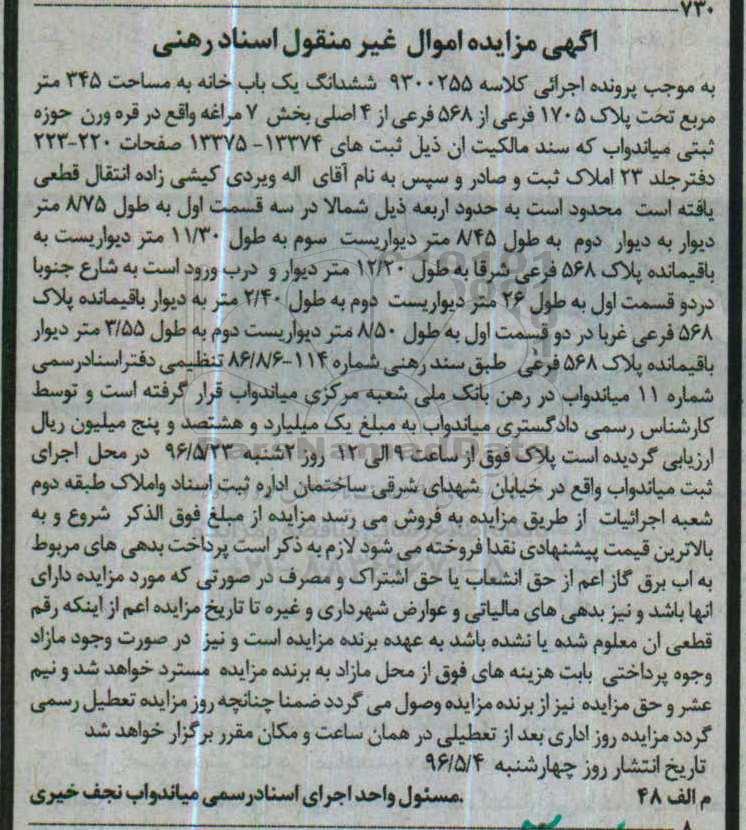 ۷۳۰
آگهی مزایده اموال غیر منقول اسناد رهنی
به موجب پرونده اجرائی کلاسه ۹۳۰۰۲۵۵ ششدانگ یک باب خانه به مساحت ۳۴۵ متر
مربع تحت پلاک ۱۷۰۵ فرعی از ۵۶۸ فرعی از ۴ اصلی بخش ۷ مراغه واقع در قره ورن حوزه
ثبتی میاندواب که سند مالکیت ان ذیل ثبت های ۱۳۳۷۴- ۱۳۳۷۵ صفحات ۲۲۰-۲۲۳
دفتر جلد ۲۳ املاک ثبت و صادر و سپس به نام آقای اله ویردی کیشی زاده انتقال قطعی
یافته است محدود است به حدود اربعه ذیل شمالا در سه قسمت اول به طول ۸/۷۵ متر
دیوار به دیوار دوم به طول ۸/۴۵ متر دیواریست سوم به طول ۱۱/۳۰ متز دیواریست به
باقیمانده پلاک ۵۶۸ فرعی شرقا به طول ۱۲/۲۰ متر دیوار و درب ورود است به شارع جنوبا
دردو قسمت اول به طول ۲۶ متر دیواریست دوم به طول ۲/۴۰ متر به دیوار باقیمانده پلاک
۵۶۸ فرعی غربا در دو قسمت اول به طول ۸/۵۰ متر دیواریست دوم به طول ۳/۵۵ متر دیوار
باقیمانده پلاک ۵۶۸ فرعی طبق سند رهنی شماره ۱۱۴-۸۶/۸/۶ تنظیمی دفتر اسنادرسمی
شماره ۱۱ میاندواب در رهن بانک ملی شعبه مرکزی میاندواب قرار گرفته است و توسط
کارشناس رسمی دادگستری میاندواب به مبلغ یک میلیارد و هشتصد و پنج میلیون ریال
ارزیابی گردیده است پلاک فوق از ساعت ۹ الی ۱۲ روز ۲شنبه ۹۶/۵/۲۳ در محل اجرای
ثبت میاندواب واقع در خیابان شهدای شرقی ساختمان اداره ثبت اسناد واملاک طبقه دوم
شعبه اجرائیات از طریق مزایده به فروش می رسد مزایده از مبلغ فوق الذکر شروع و به
بالاترین قیمت پیشنهادی نقدا فروخته می شود لازم به ذکر است پرداخت بدهی های مربوط
به اب برق گاز اعم از حق انشعاب یا حق اشتراک و مصرف در صورتی که مورد مزایده دارای
انها باشد و نیز بدهی های مالیاتی و عوارض شهرداری و غیره تا تاریخ مزایده اعم از اینکه رقم
قطعی ان معلوم شده یا نشده باشد به عهده برنده مزایده است و نیز در صورت وجود مازاد
وجوه پرداختی بابت هزینه های فوق از محل مازاد به برنده مزایده مسترد خواهد شد و نیم
عشر و حق مزایده نیز از برنده مزایده وصول می گردد ضمنا چنانچه روز مزایده تعطیل رسمی
گردد مزایده روز اداری بعد از تعطیلی در همان ساعت و مکان مقرر برگزار خواهد شد
تاریخ انتشار روز چهارشنبه ۹۶/۵/۴
م الف ۴۸ .مسئول واحد اجرای اسنادرسمی میاندواب نجف خیری